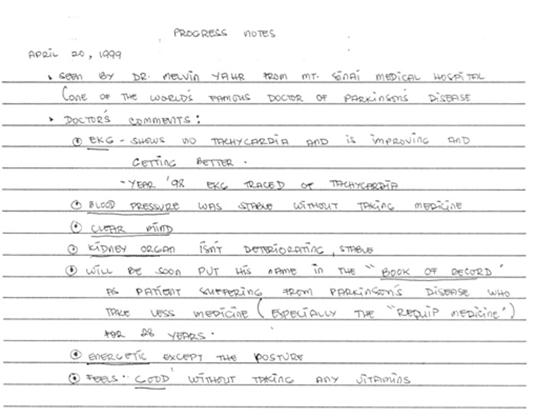 PROGRESS NOTES
APRIL 20, 1999
• SEEN BY DR. MELVIN YAHR FROM MT. SINAI MEDICAL HOSPITAL
(ONE OF THE WORLD'S FAMOUS DOCTOR OF PARKINSON'S DISEASE
• DOCTOR'S COMMENTS:
⊙ EKG - SHOWS NO TACHYCARDIA AND IS IMPROVING AND
GETTING BETTER.
- YEAR '98 EKG TRACED OF TACHYCARDIA
⊙ BLOOD PRESSURE WAS STABLE WITHOUT TAKING MEDICINE
⊙ CLEAR MIND
⊙ KIDNEY ORGAN ISN'T DETERIORATING, STABLE
⊙ WILL BE SOON PUT HIS NAME IN THE "BOOK OF RECORD"
AS PATIENT SUFFERING FROM PARKINSON'S DISEASE WHO
TAKE LESS MEDICINE (ESPECIALLY THE "REQUIP MEDICINE")
FOR 28 YEARS.
⊙ ENERGETIC EXCEPT THE POSTURE
⊙ FEELS "GOOD" WITHOUT TAKING ANY VITAMINS